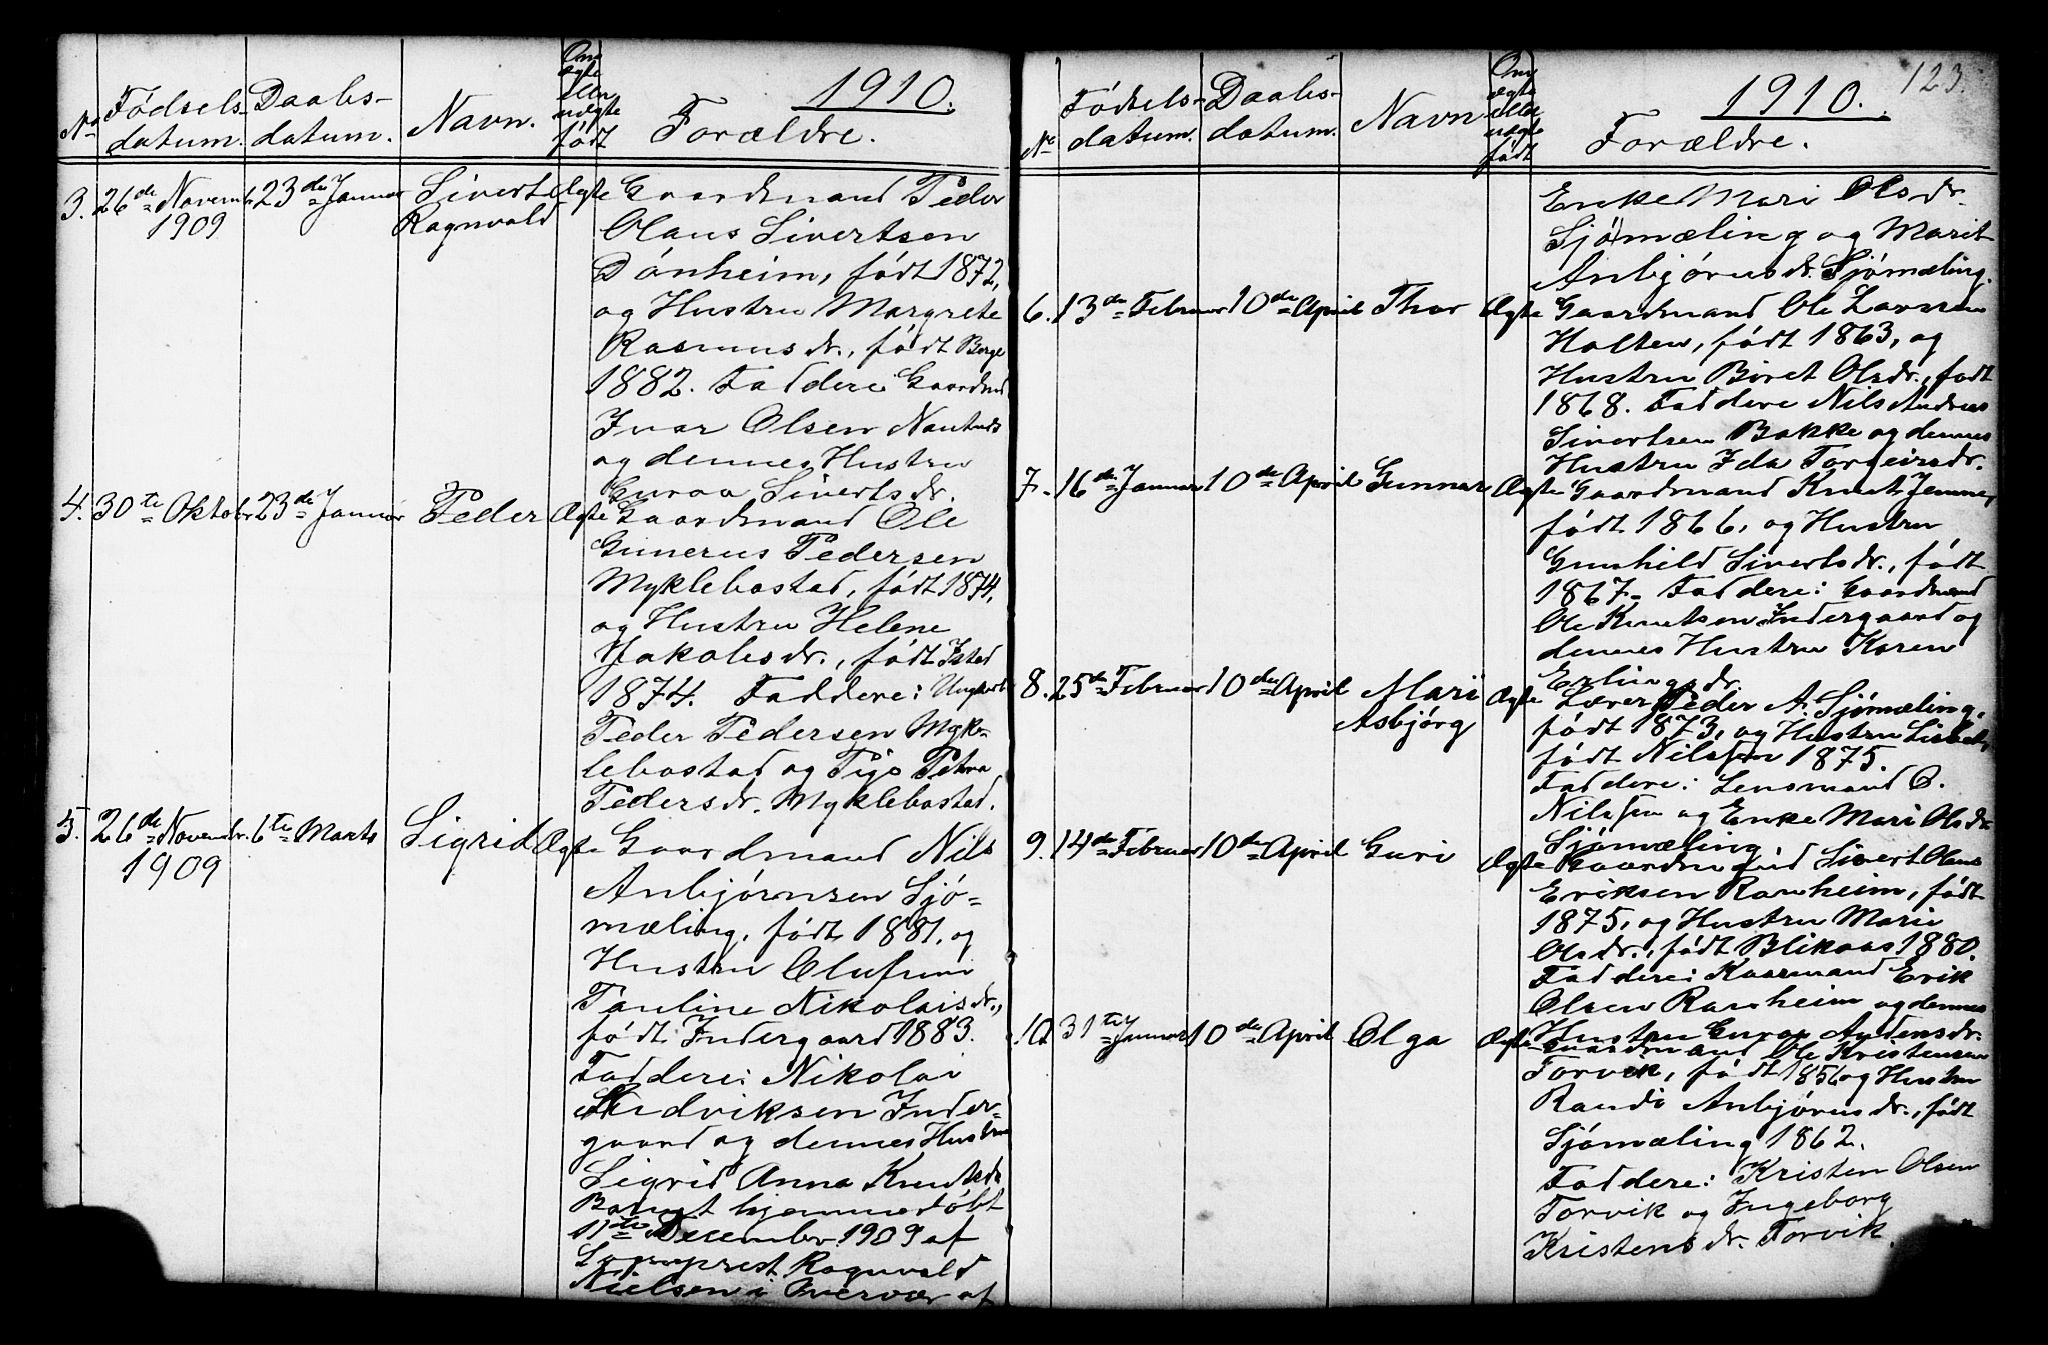 No Fødsels-datum. Daabs-datum. Navn. Om ægte eller uægte født 1910. Forældre.
3. 26de Novem. 1909 23de Januar Sivert Ragnvald Ægte Gaardmand Peder
Olaus Sivertsen
Dønheim, født 1872,
og Hustru Margrete
Rasmusdr., født Berge
1882. Faddere: Gaardmd
Ivar Olsen
og dennes Hustru
Guroa Sivertsdr.
4. 30te Oktobr 23de Januar Peder Ægte Gaardmand Ole
Gunerus Pedersen
Myklebostad, født 1874,
og Hustru Helene
Jakobsdr., født Istad
1874. Faddere: Ungkarl
Peder Pedersen Myk-
lebostad og Pige Petra
Pedersdr. Myklebostad.
5. 26de Novembr. 1909 6te Marts Sigrid Ægte Gaardmand Nils
Anbjørnsen Sjø-
mæling, født 1881, og
Hustru Olufine
Pauline Nikolaisdr.,
født Indergaard 1883.
Faddere: Nikolai
Ludviksen Inder-
gaard og dennes Hustru
Sigrid Anna Knutsdr
Barnet hjemmedøbt
11te December 1909 af
Sogneprest Ragnvald
Nielsen i Nærvær af
123.
No Fødsels-datum. Daabs-datum. Navn Om ægte eller uægte født 1910. Forældre.
Enke Mari Olsdr.
Sjømæling og Marit
Anbjørnsdr. Sjømæling.
6. 13de Februar 10de April Thor Ægte Gaardmand Ole Larsen
Holten, født 1863, og
Hustru Beret Olsdr., født
1868. Faddere Nils Andreas
Sivertsen Bakke og dennes
Hustru Ida Torgeirsdr.
7. 16de Januar 10de April Gunnar Ægte Gaardmand Knut Jemne,
født 1866, og Hustru
Gunhild Sivertsdr., født
1867. Faddere: Gaardmand
Ole Knutsen Indergaard og
dennes Hustru Karen
Erlingsdr.
8. 25de Februar 10de April Mari Asbjørg Ægte Lærer Peder A. Sjømæling,
født 1873, og Hustru
født Nilssen 1875.
Faddere: Lensmand O.
Nilssen og Enke Mari Olsdr
Sjømæling
9. 14de Februar 10de April Guri Ægte Gaardmand Sivert Olaus
Eriksen Ranheim, født
1875, og Hustru Marie
Olsdr., født Blikaas 1880.
Faddere: Kaarmand Erik
Olsen Ranheim og dennes
Hustru Guroa Andersdr.
10. 31te Januar 10de April Olga Ægte Gaardmand Ole Kristensen
Torvik, født 1856 og Hustru
Randi Anbjørnsdr., født
Sjømæling 1862.
Faddere: Kristen Olsen
Torvik og Ingeborg
Kristensdr. Torvik.